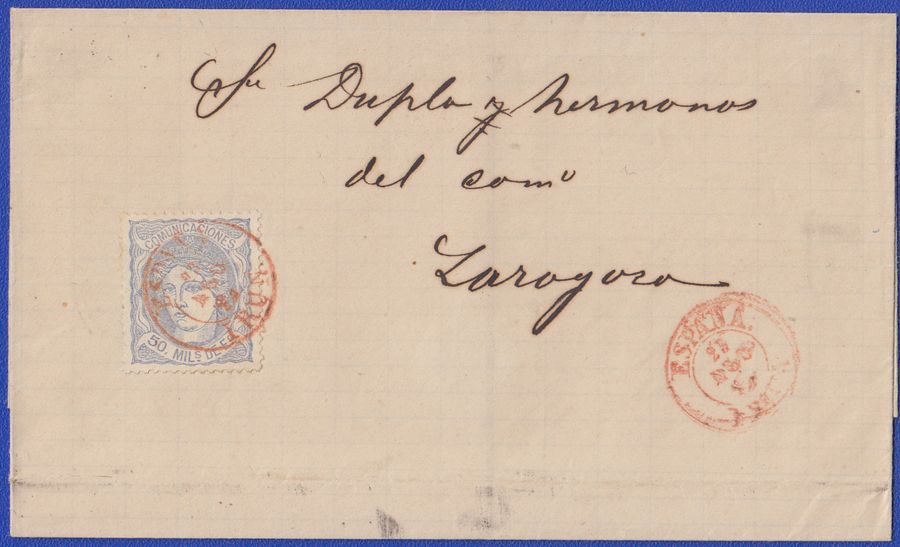 Sr Dupla y hermanos
del como
Zaragoza
COMUNICACIONES
50. MILS DE E
ESPAÑA.
IRUN